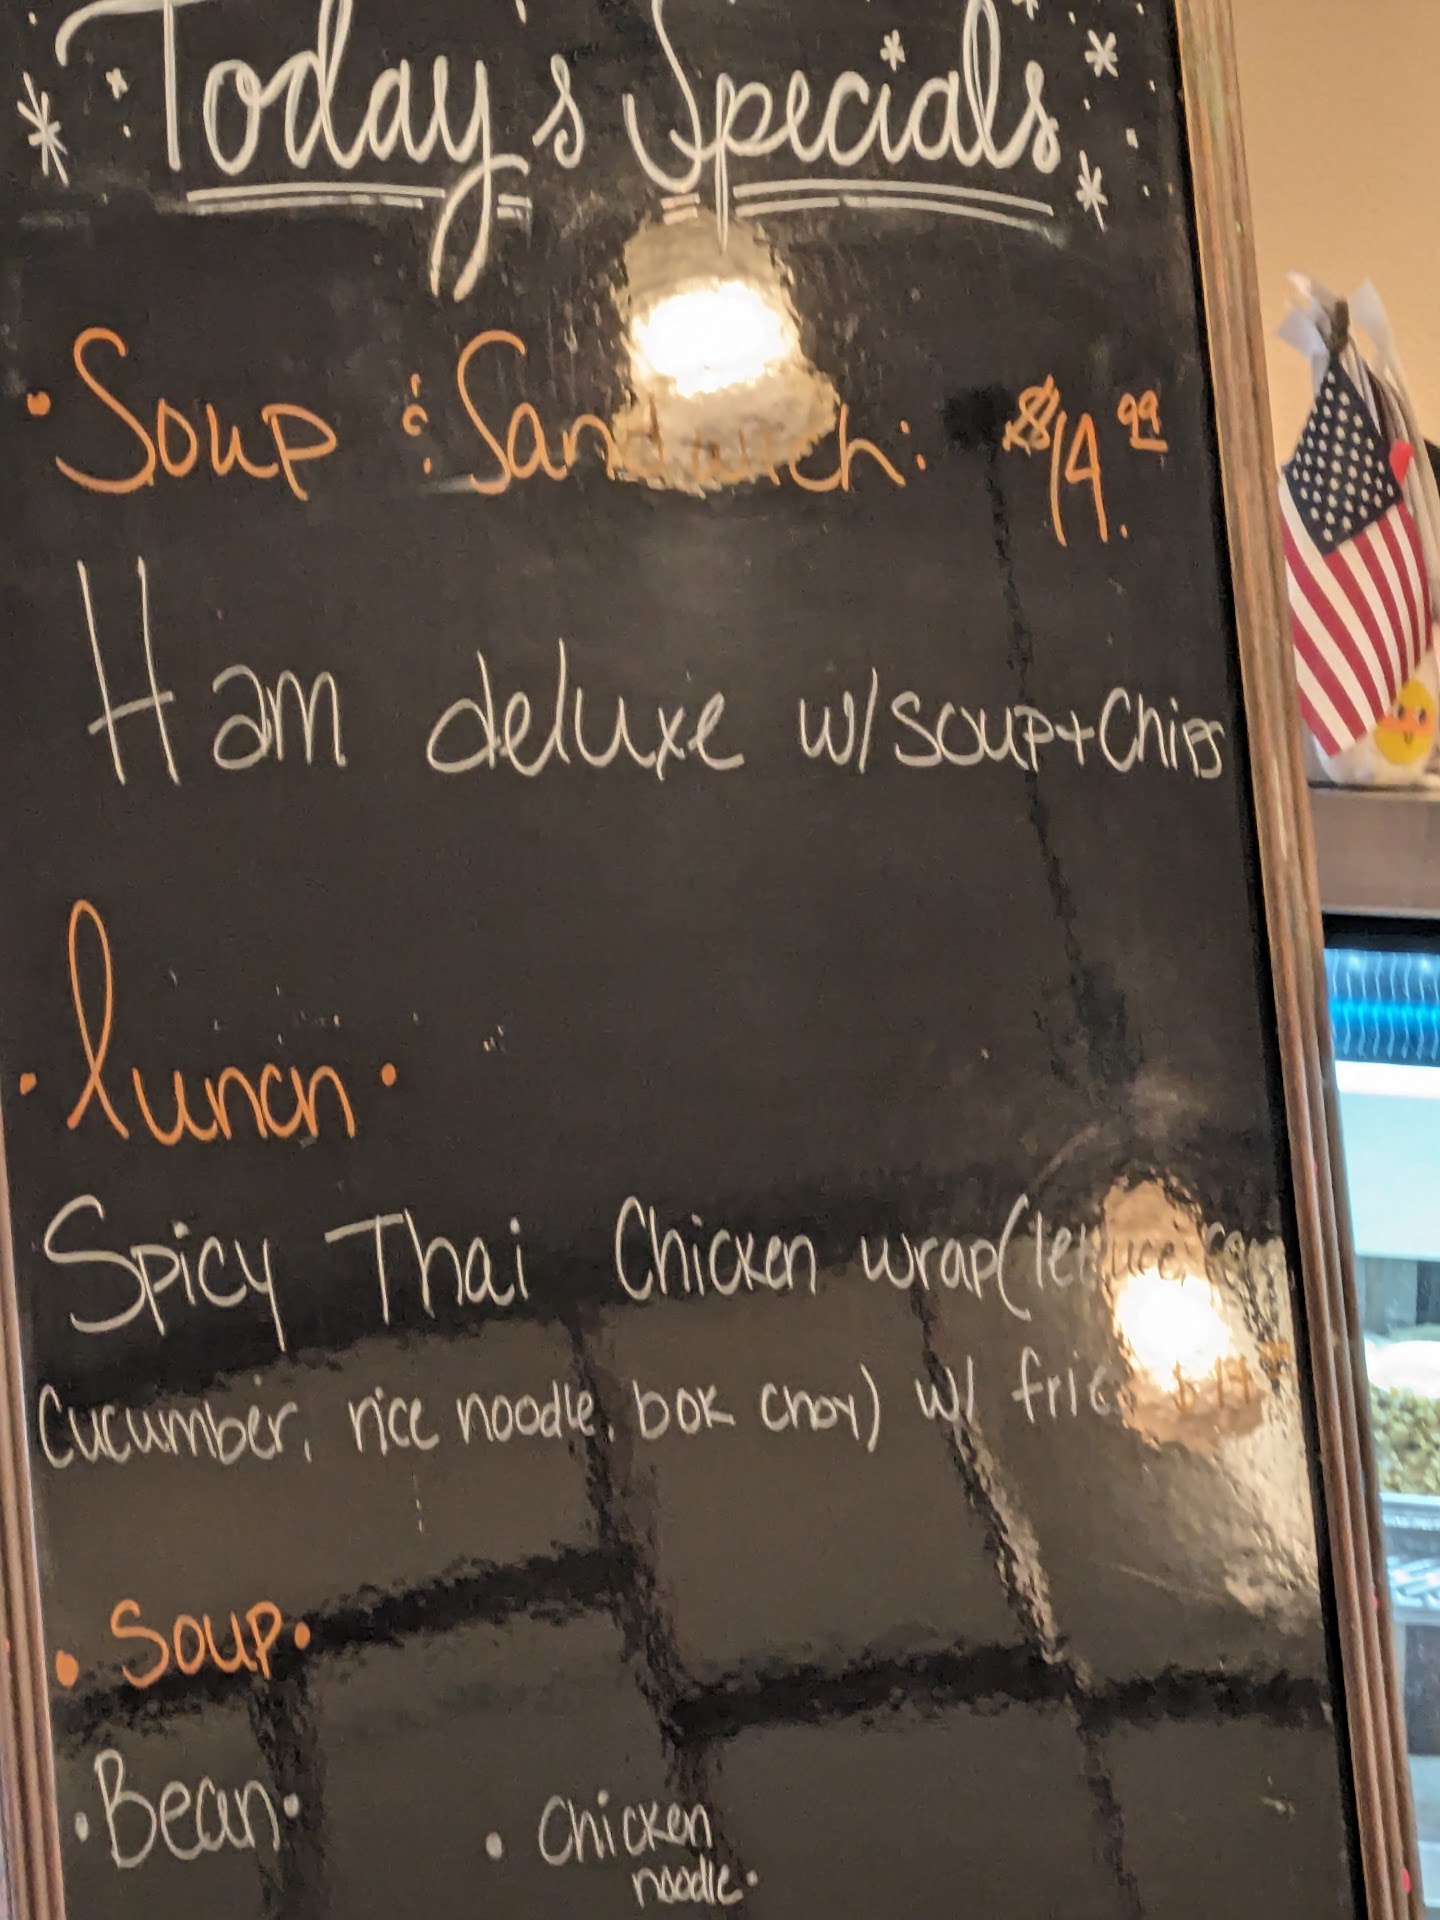 Today's Specials
• Soup & Sandwich: $14.99
Ham deluxe w/soup+Chips
• lunch •
Spicy Thai Chicken wrap (lettuce,
Cucumber, rice noodle, bok choy) w/ fries
• Soup •
• Bean • • Chicken
noodle •